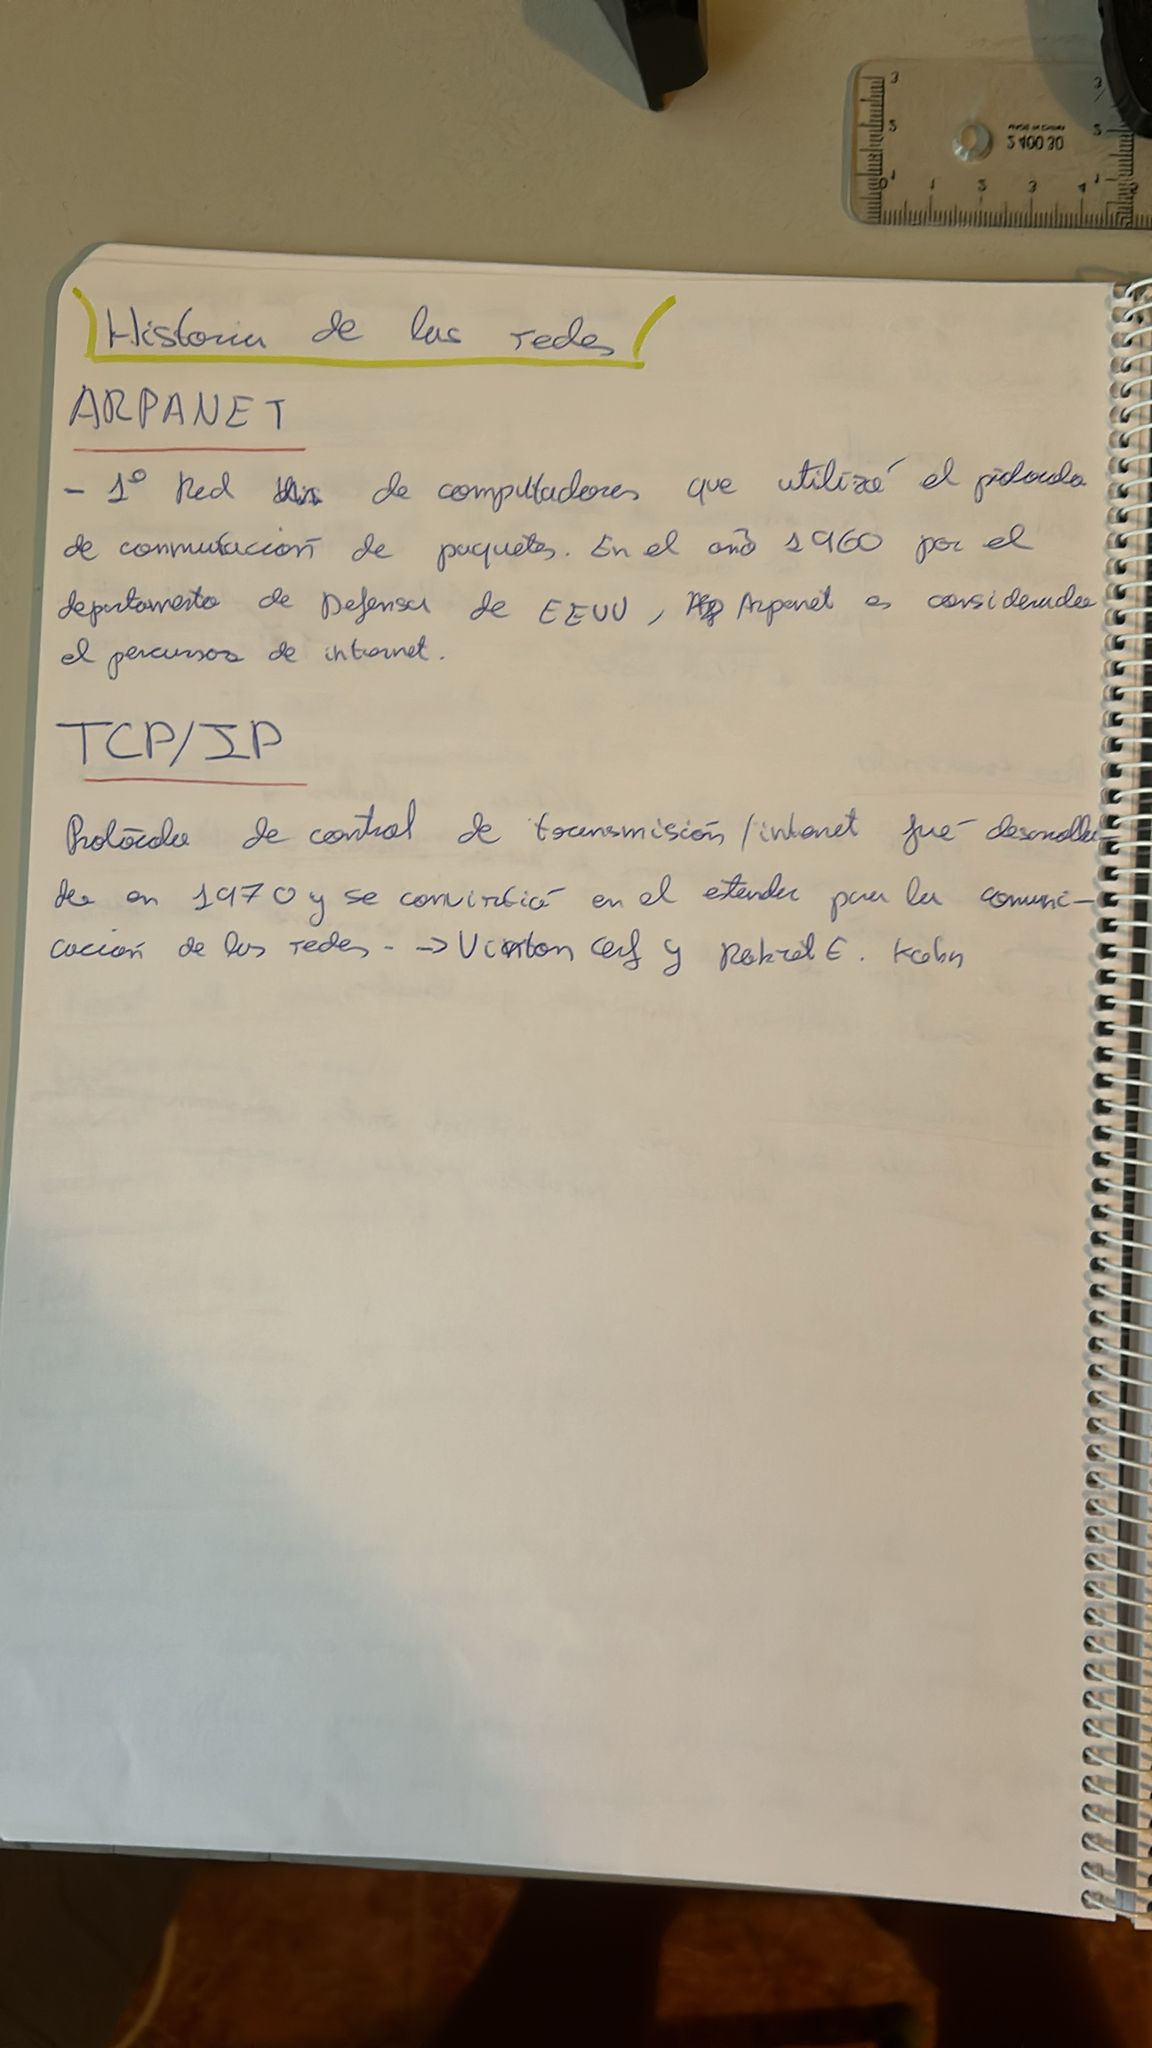 3
2
1
0 1 2 3 4
MADE IN
S 400 30
3
2
1
Historia de las redes
ARPANET
- 1º Red de computadores que utilizó el protocolo
de conmutación de paquetes. En el año 1960 por el
departamento de Defensa de EEUU, Arpanet es considerado
el percursos de internet.
TCP/IP
Protócolo de control de transmisión/internet fué desarrolla
do en 1970 y se convirtió en el estandar para la comuni-
cación de las redes - → Vinton Cerf y Robert E. Kahn